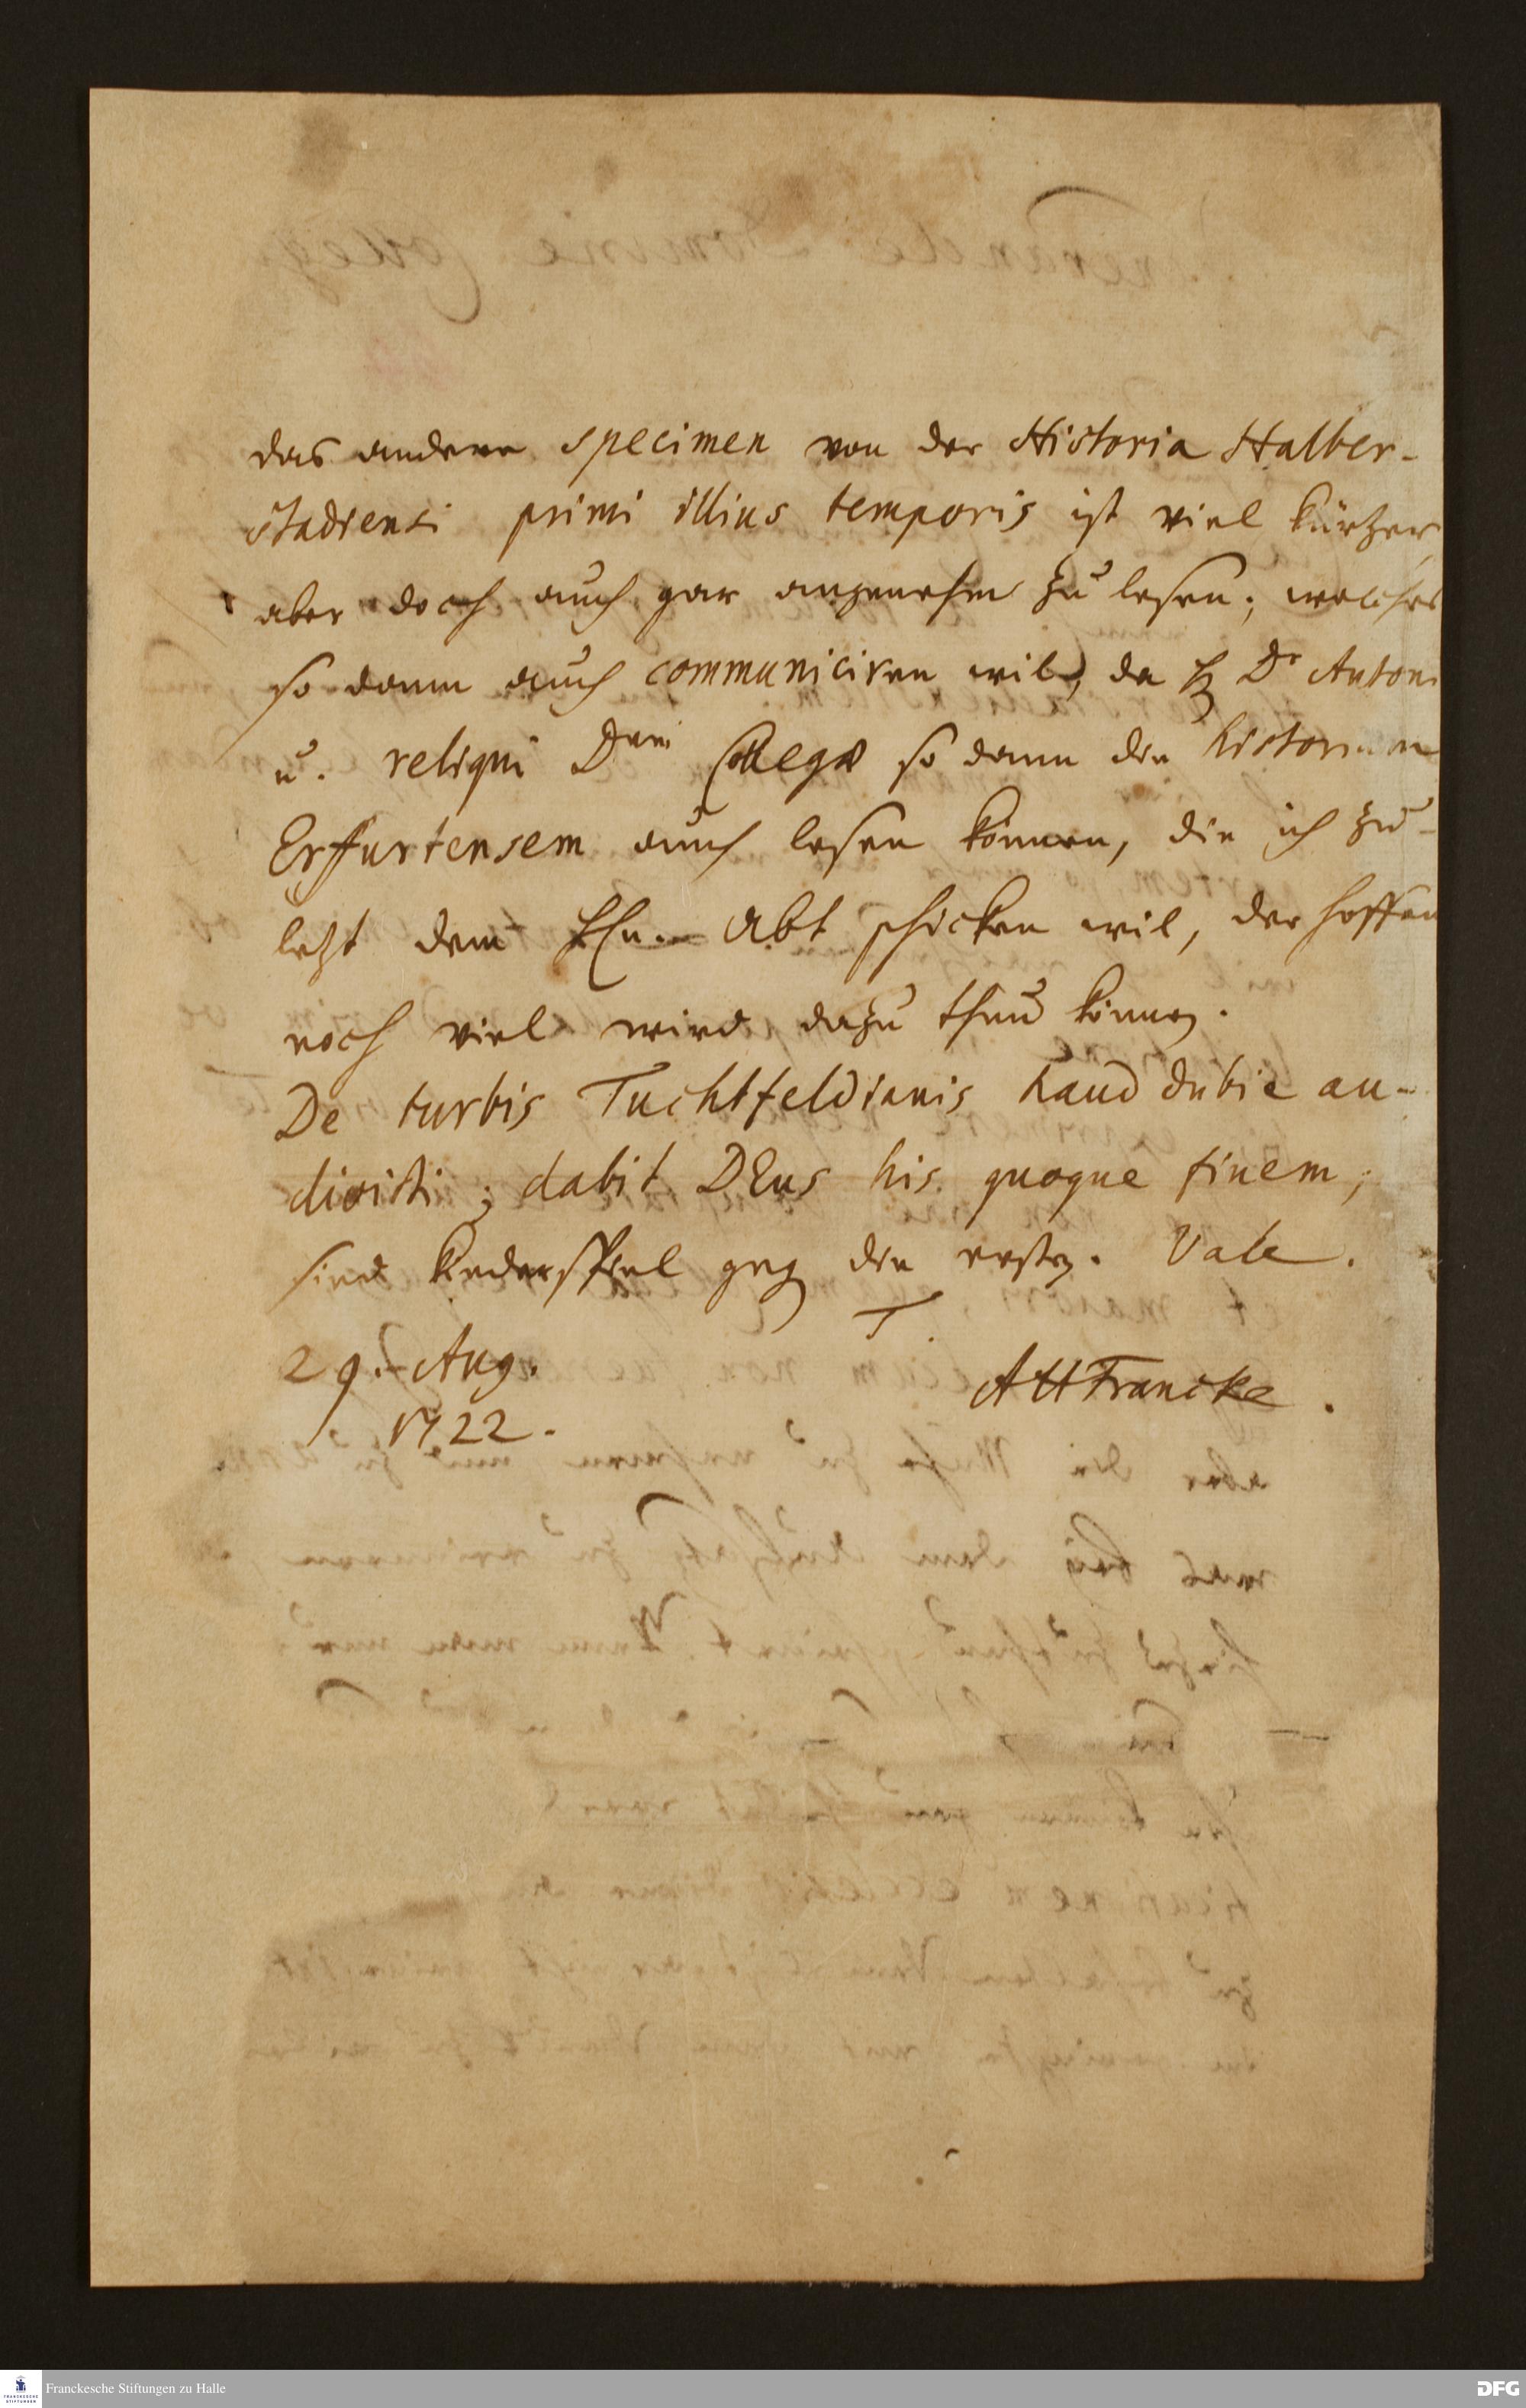 das andere specimen von der Historia Halber-
stadiensi primi illius temporis ist viel kürtzer,
aber doch auch gar angenehm zu lesen; welches
so dann auch communiciren wil, da H. Dr Anton
u. reliqui Dnni Collegæ so dann die historiam
Erffurtensem auch lesen können, die ich zu-
letzt dem Hn. Abt schicken wil, der hoffen
noch viel wird dazu thun können.
De turbis Tuchtfeldianis haud dubie au-
divisti; dabit DEus his quoque finem;
sind Kinderspiel gegen die ersten. Vale.
T.
29. Aug.
1722.
AHFrancke.
Franckesche Stiftungen zu Halle
DFG